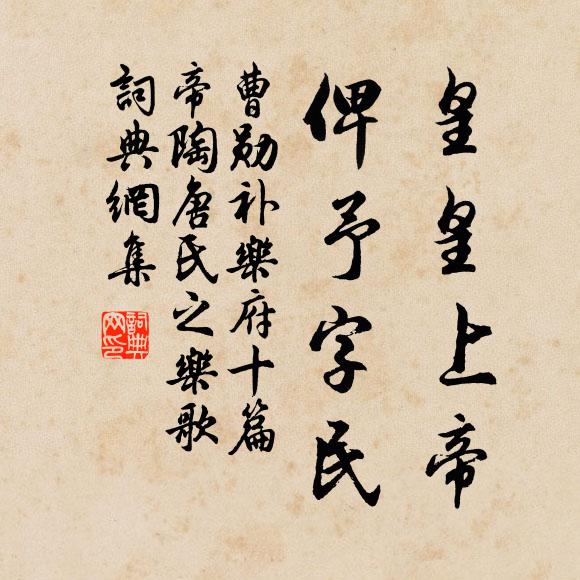 皇皇上帝
俾予字民
曹勋补樂府十篇
帝陶唐氏之樂歌
詞典網集
詞典
网印